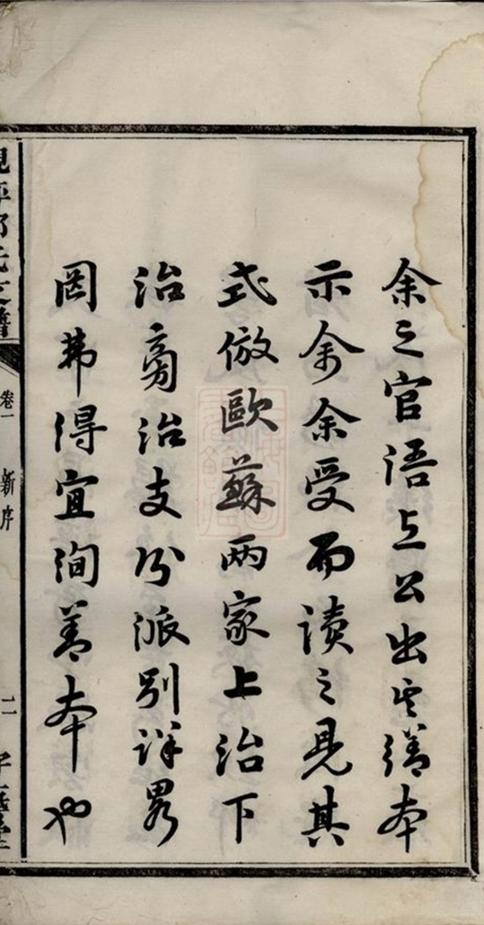 余之官语公出其繕本
示余余受而读之見其
式倣歐蘇兩家上治下
治旁治支分派別详畧
罔弗得宜洵善本也
氏支譜
卷一 新序
二